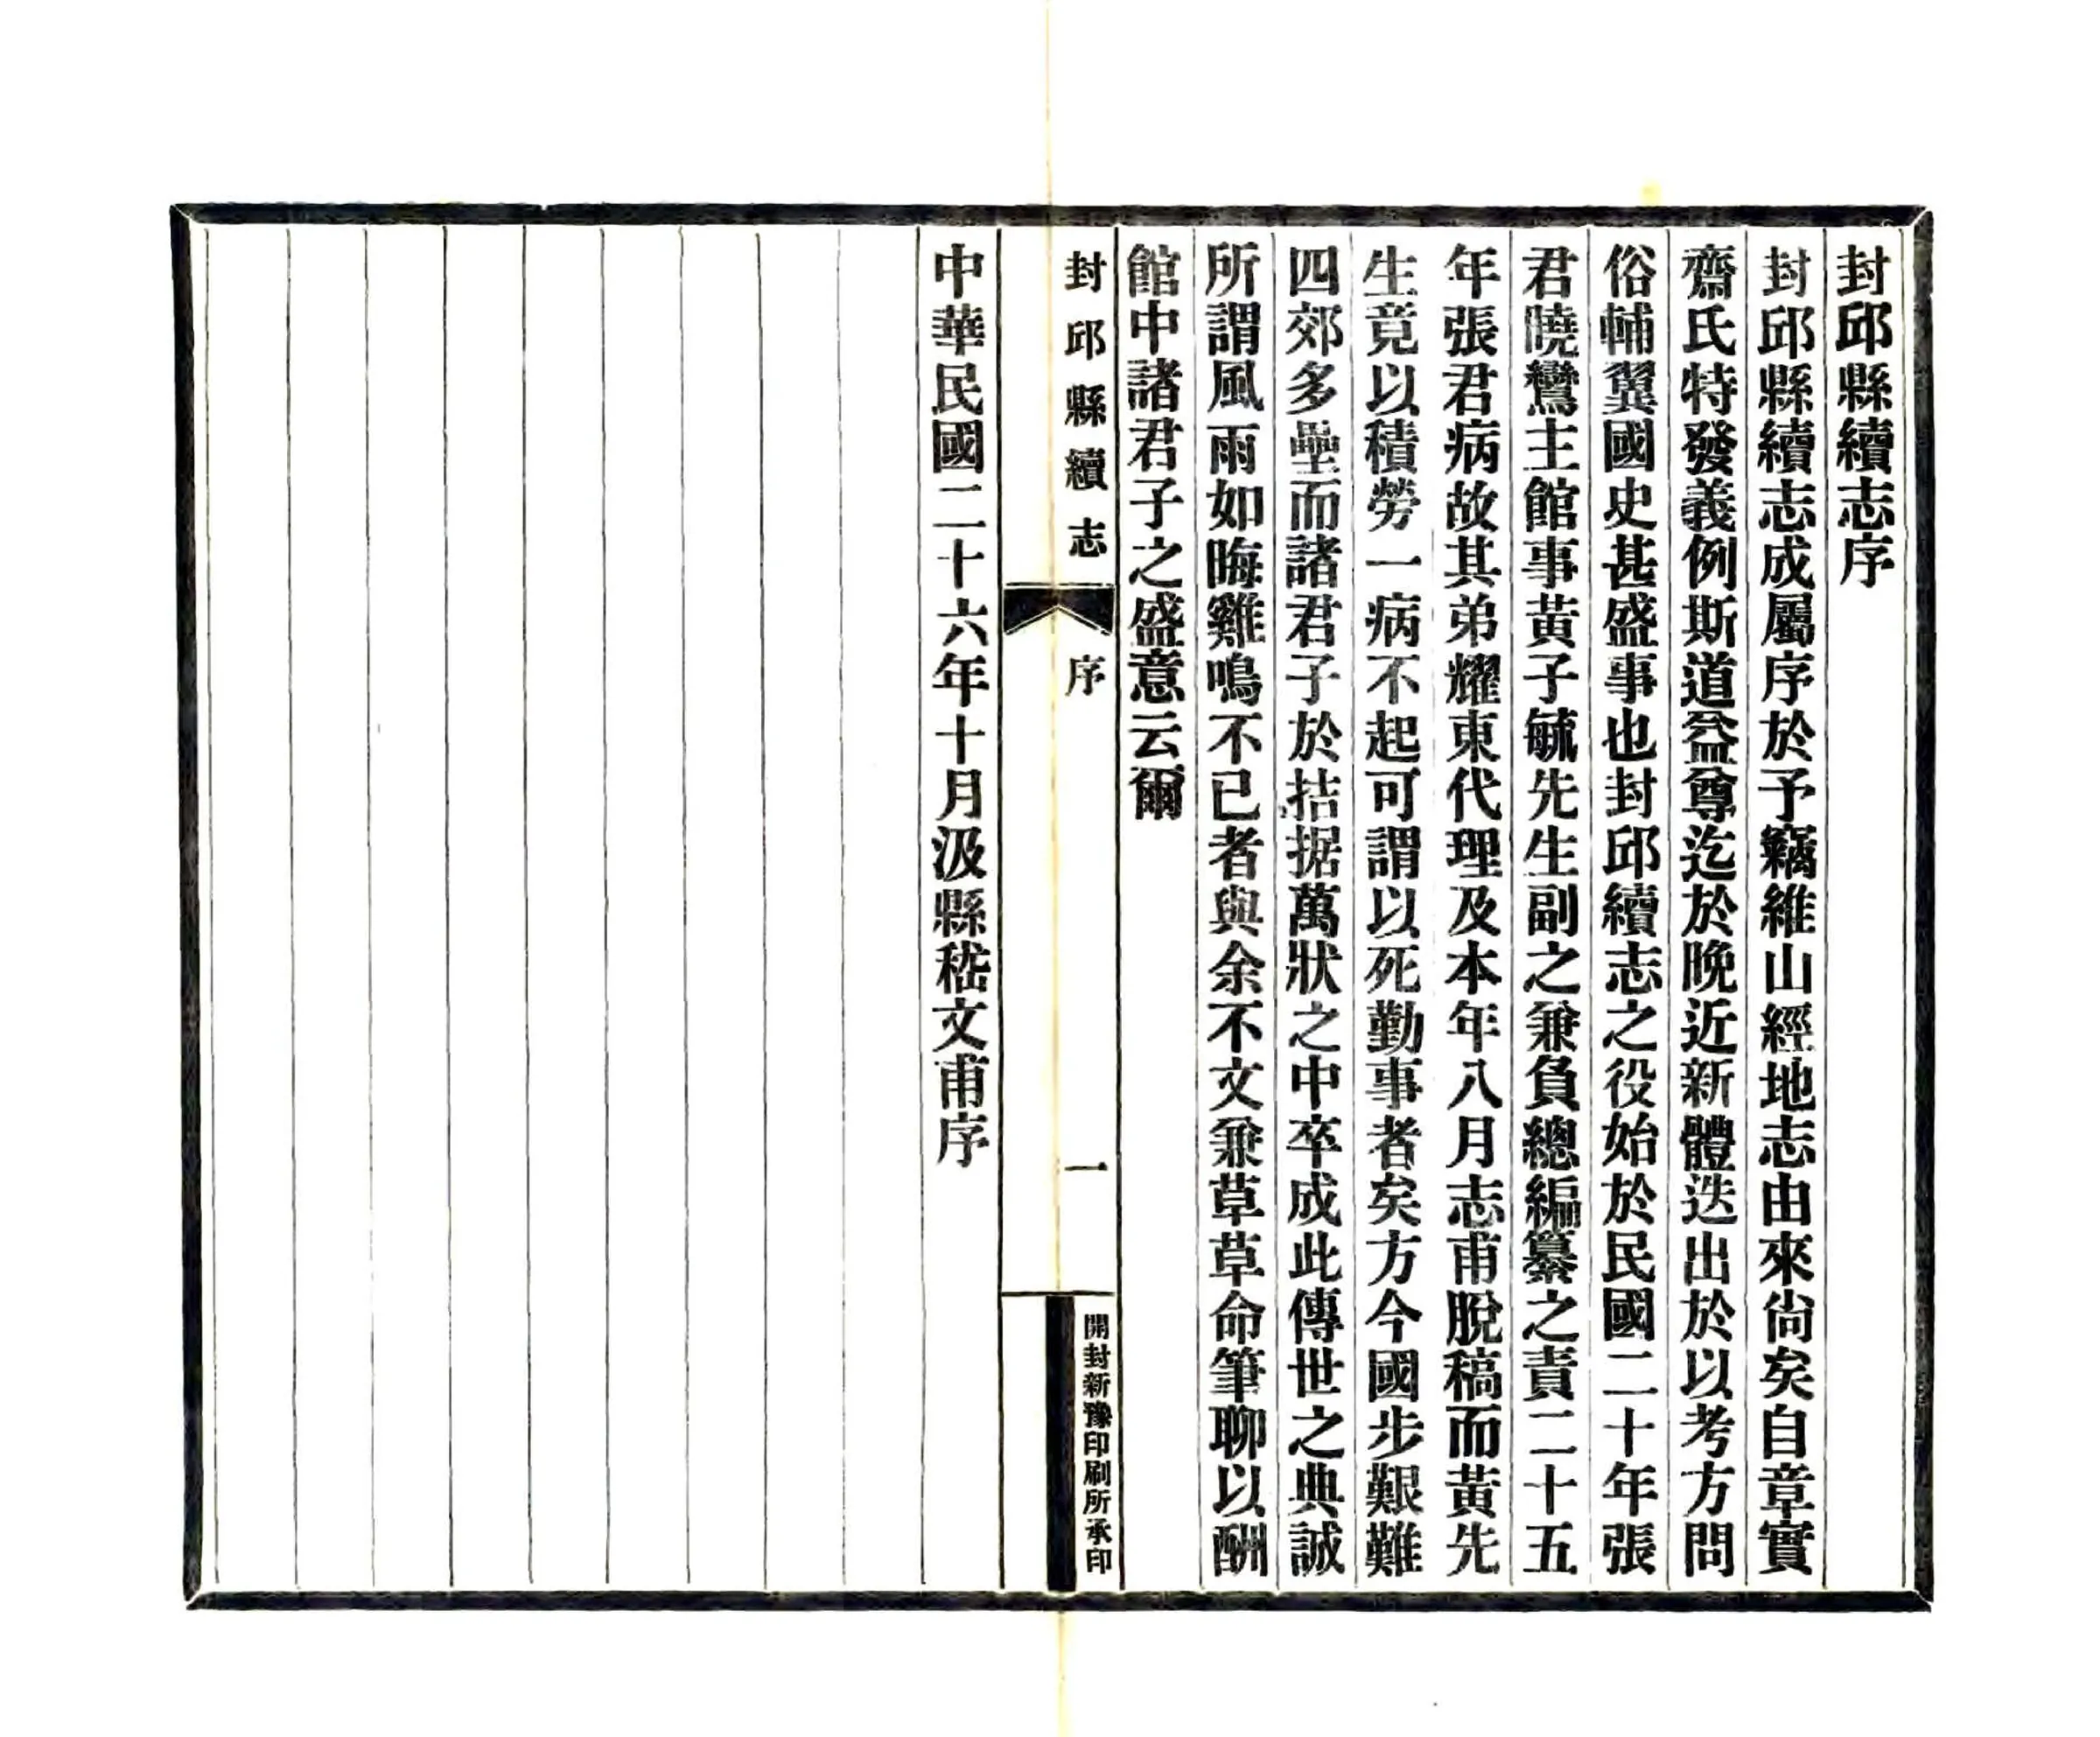 封邱縣續志序
封邱縣續志成屬序於予竊維山經地志由來尙矣自章實
齋氏特發義例斯道益尊迄於晚近新體迭出於以考方問
俗輔翼國史甚盛事也封邱續志之役始於民國二十年張
君曉鸞主館事黃子毓先生副之兼負總編纂之責二十五
年張君病故其弟耀東代理及本年八月志甫脫稿而黃先
生竟以積勞一病不起可謂以死勤事者矣方今國步艱難
四郊多壘而諸君子於拮据萬狀之中卒成此傳世之典誠
所謂風雨如晦雞鳴不已者與余不文兼草草命筆聊以酬
館中諸君子之盛意云爾
封邱縣續志
序
一
開封新豫印刷所承印
中華民國二十六年十月汲縣嵇文甫序